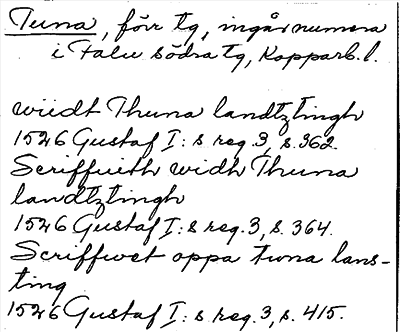 Tuna, förr tg, ingår numera
i Falu södra tg, Kopparb. l.
widt Thuna landtztingh
1526 Gustaf I:s reg. 3, s. 362.
Scriffuith widh Thuna
landtztingh
1526 Gustaf I:s reg. 3, s. 364.
Scriffwet oppa tuna lans-
ting
1526 Gustaf I:s reg. 3, s. 415.